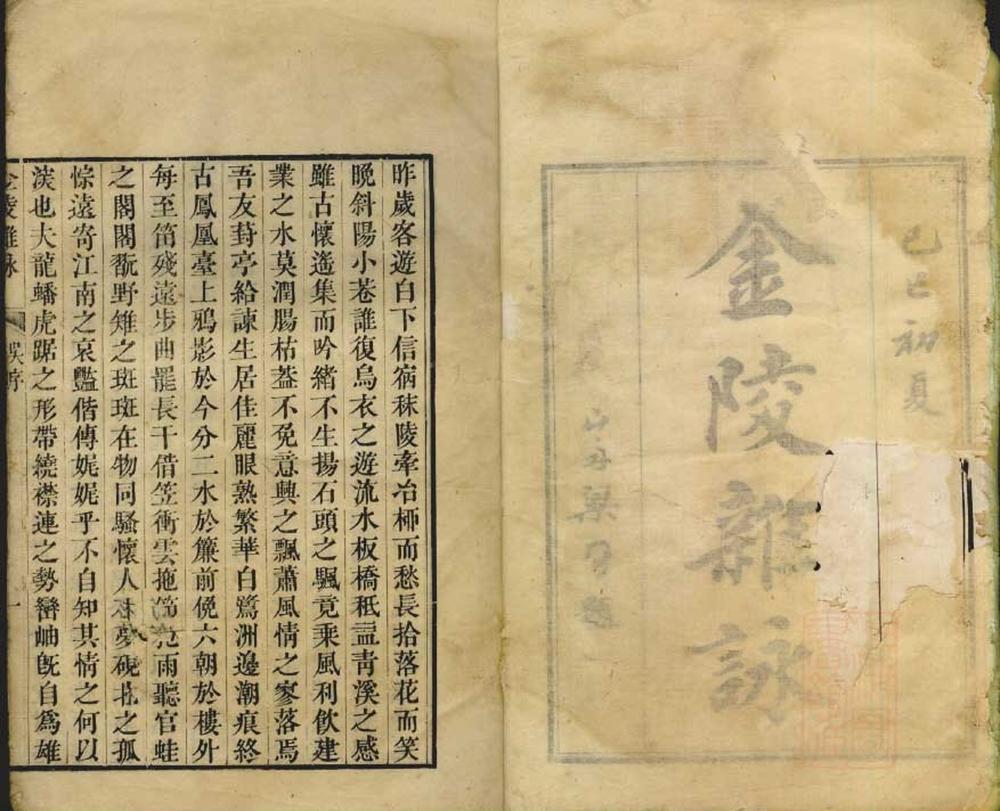 己巳初夏
金陵雜詠
山舟梁題
昨歲客遊白下信宿秣陵牽冶柳而愁長拾落花而笑
晚斜陽小巷誰復烏衣之遊流水板橋秪益靑溪之感
雖古懷遙集而吟緒不生揚石頭之颿竟乘風利飮建
業之水莫潤腸枯葢不免意興之飄蕭風情之寥落焉
吾友葑亭給諫生居佳麗眼熟繁華白鷺洲邊潮痕終
古鳳凰臺上鴉影於今分二水於簾前俛六朝於樓外
每至笛殘遠步曲罷長干借笠衝雲拖筇雨聽官蛙
之閣閣翫野雉之斑斑在物同騷懷人夢硯北之孤
悰遠寄江南之哀豔偕傳娓娓乎不自知其情之何以
淡也夫龍蟠虎踞之形帶繞襟連之勢巒岫旣自爲雄
金陵雜詠 吳序 一